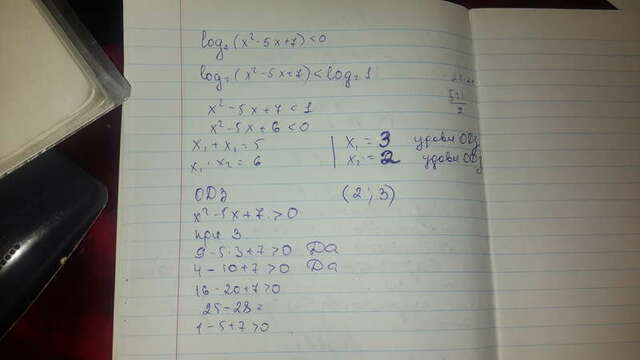 log₂(x²-5x+7)<0
log₂(x²-5x+7)<log₂1
x²-5x+7<1
x²-5x+6<0
x₁+x₁=5
x₁·x₂=6
x₁=3 удовл ОДЗ
x₂=2 удовл ОДЗ
5±1
2
ОДЗ
(2;3)
x²-5x+7>0
при 3
9-5·3+7>0 Да
4-10+7>0 Да
16-20+7>0
25-28=
1-5+7>0